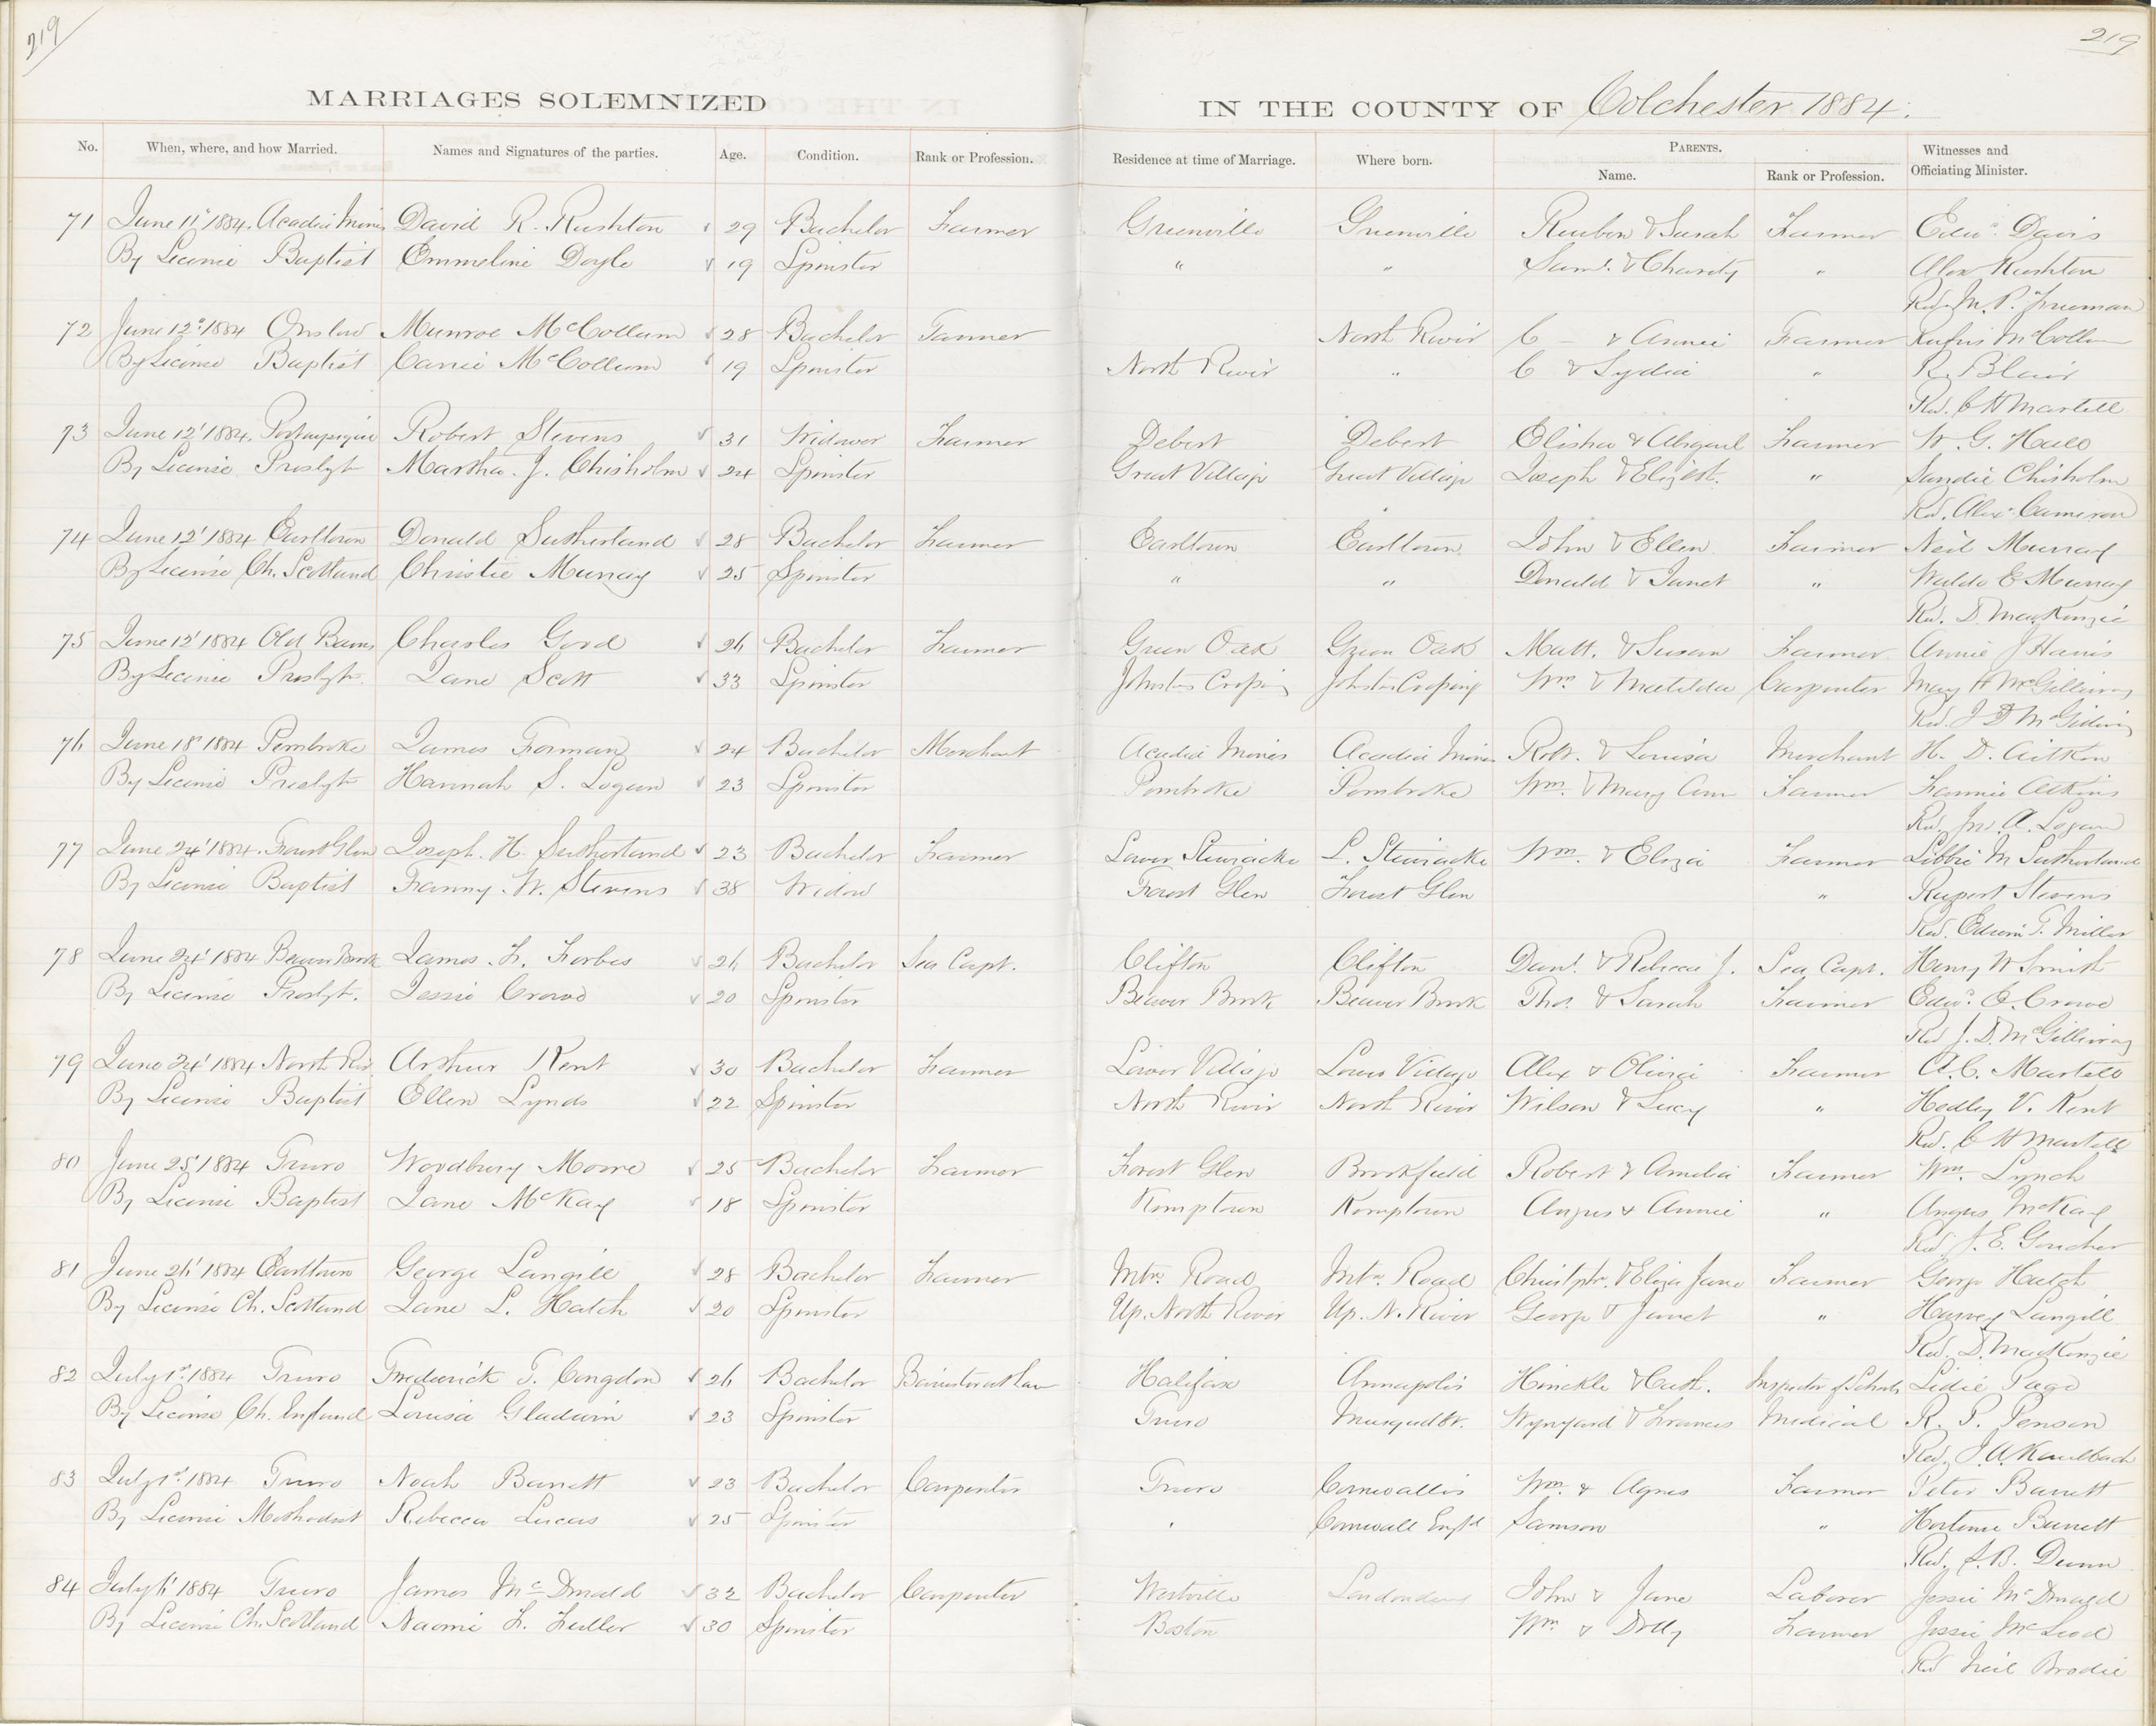 219
219
MARRIAGES SOLEMNIZED IN THE COUNTY OF Colchester 1884.
No. When, where, and how Married. Names and Signatures of the parties. Age. Condition. Rank or Profession. Residence at time of Marriage. Where born. PARENTS. Witnesses and
Name. Rank or Profession. Officiating Minister.
71 June 11' 1884. Acadia Mines David R. Rushton 29 Bachelor Farmer Greenville Greenville Reuben & Sarah Farmer Edwd. Davis
By License Baptist Emmeline Doyle 19 Spinster " " Saml. & Charity " Alex Rushton
Rev. M. P. Freeman
72 June 12' 1884 Onslow Munroe McCollum 28 Bachelor Farmer North River C – & Annie Farmer Rufus McCollum
By License Baptist Carrie McCollum 19 Spinster North River " C & Lydia " R. Blair
Rev. C H Martell
73 June 12' 1884. Robert Stevens 31 Widower Farmer Debert Debert Elisha & Abigail Farmer W. G. Hall
By License Presbyt Martha. J. Chisholm 24 Spinster Great Village Great Village Joseph & Elizbt. " Sandie Chisholm
Rev. Alex. Cameron
74 June 12' 1884 Earltown Donald Sutherland 28 Bachelor Farmer Earltown Earltown John & Ellen Farmer Neil Murray
By License Ch. Scotland Christie Murray 25 Spinster " " Donald & Janet " Waldo E Murray
Rev. D. MacKenzie
75 June 12' 1884 Old Barns Charles Gord 26 Bachelor Farmer Green Oak Green Oak Matt. & Susan Farmer Annie J Harris
By License Presbyt. Jane Scott 33 Spinster Johnstns Crossing Johnstns Crossing Wm. & Matilda Carpenter Mary H McGillivray
Rev. J D McGillivray
76 June 18' 1884 Pembroke James Forman 24 Bachelor Merchant Acadia Mines Acadia Mines Robt. & Louisa Merchant H. D. Aitken
By License Presbyt Hannah S. Logan 23 Spinster Pembroke Pembroke Wm. & Mary Ann Farmer Fannie Atkins
Rev. Jno. A. Logan
77 June 24' 1884. Forest Glen Joseph. H. Sutherland 23 Bachelor Farmer Lower Stewiacke L. Stewiacke Wm. & Eliza Farmer Libbie M Sutherland
By License Baptist Franny. W. Stevens 38 Widow Forest Glen Forest Glen " Rupert Stevens
Rev. Edwin T. Miller
78 June 24' 1884 Beaver Brook James. F. Forbes 26 Bachelor Sea Capt. Clifton Clifton Danl. & Rebecca J. Sea Capt. Henry W Smith
By License Presbyt. Jessie Crowe 20 Spinster Beaver Brook Beaver Brook Thos. & Sarah Farmer Edwd. E. Crowe
Rev J. D. McGillivray
79 June 24' 1884 North Riv Arthur Kent 30 Bachelor Farmer Lower Village Lower Village Alex & Olivia Farmer A. C. Martell
By License Baptist Ellen Lynds 22 Spinster North River North River Wilson & Lucy " Hedley V. Kent
Rev. C H Martell
80 June 25' 1884 Truro Woodbury Moore 25 Bachelor Farmer Forest Glen Brookfield Robert & Amelia Farmer Wm. Lynch
By License Baptist Jane McKay 18 Spinster Kemptown Kemptown Angus & Annie " Angus McKay
Rev. J. E. Goucher
81 June 26' 1884 Earltown George Langill 28 Bachelor Farmer Mtn. Road Mtn. Road Christphr. & Eliza Jane Farmer George Hatch
By License Ch. Scotland Jane L. Hatch 20 Spinster Up. North River Up. N. River George & Janet " Harvey Langill
Rev. D. MacKenzie
82 July 1st 1884 Truro Frederick T. Congdon 26 Bachelor Barrister at Law Halifax Annapolis Hinckle & Cath. Inspector of Schools Lidie Page
By License Ch. England Louisa Gladwin 23 Spinster Truro Musquodbt. Wynyard & Frances Medical R. P. Penson
Rev. J. A. Kaulbach
83 July 1st 1884 Truro Noah Barrett 23 Bachelor Carpenter Truro Cornwallis Wm. & Agnes Farmer Peter Barrett
By License Methodist Rebecca Lucas 25 Spinster " Cornwall Engld Samson " Hortense Barrett
Rev. S. B. Dunn
84 July 1' 1884 Truro James McDonald 32 Bachelor Carpenter Westville Londonderry John & Jane Laborer Jessie McDonald
By License Ch. Scotland Naomi F. Fuller 30 Spinster Boston Wm. & Dolly Farmer Jessie McLeod
Rev Neil Brodie